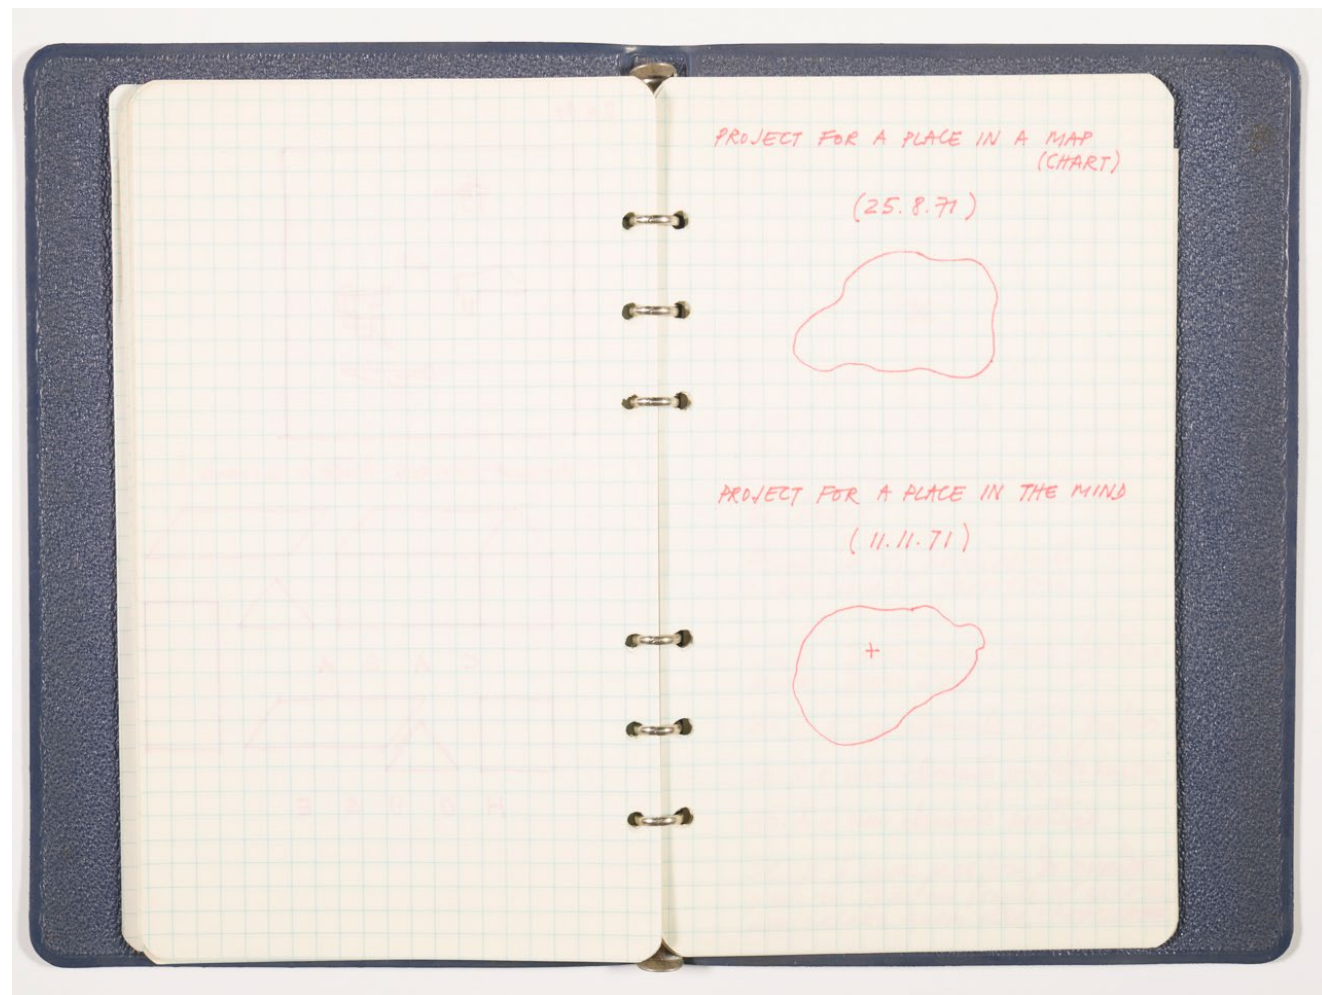 PROJECT FOR A PLACE IN A MAP
(CHART)
(25.8.71)
PROJECT FOR A PLACE IN THE MIND
(11.11.71)